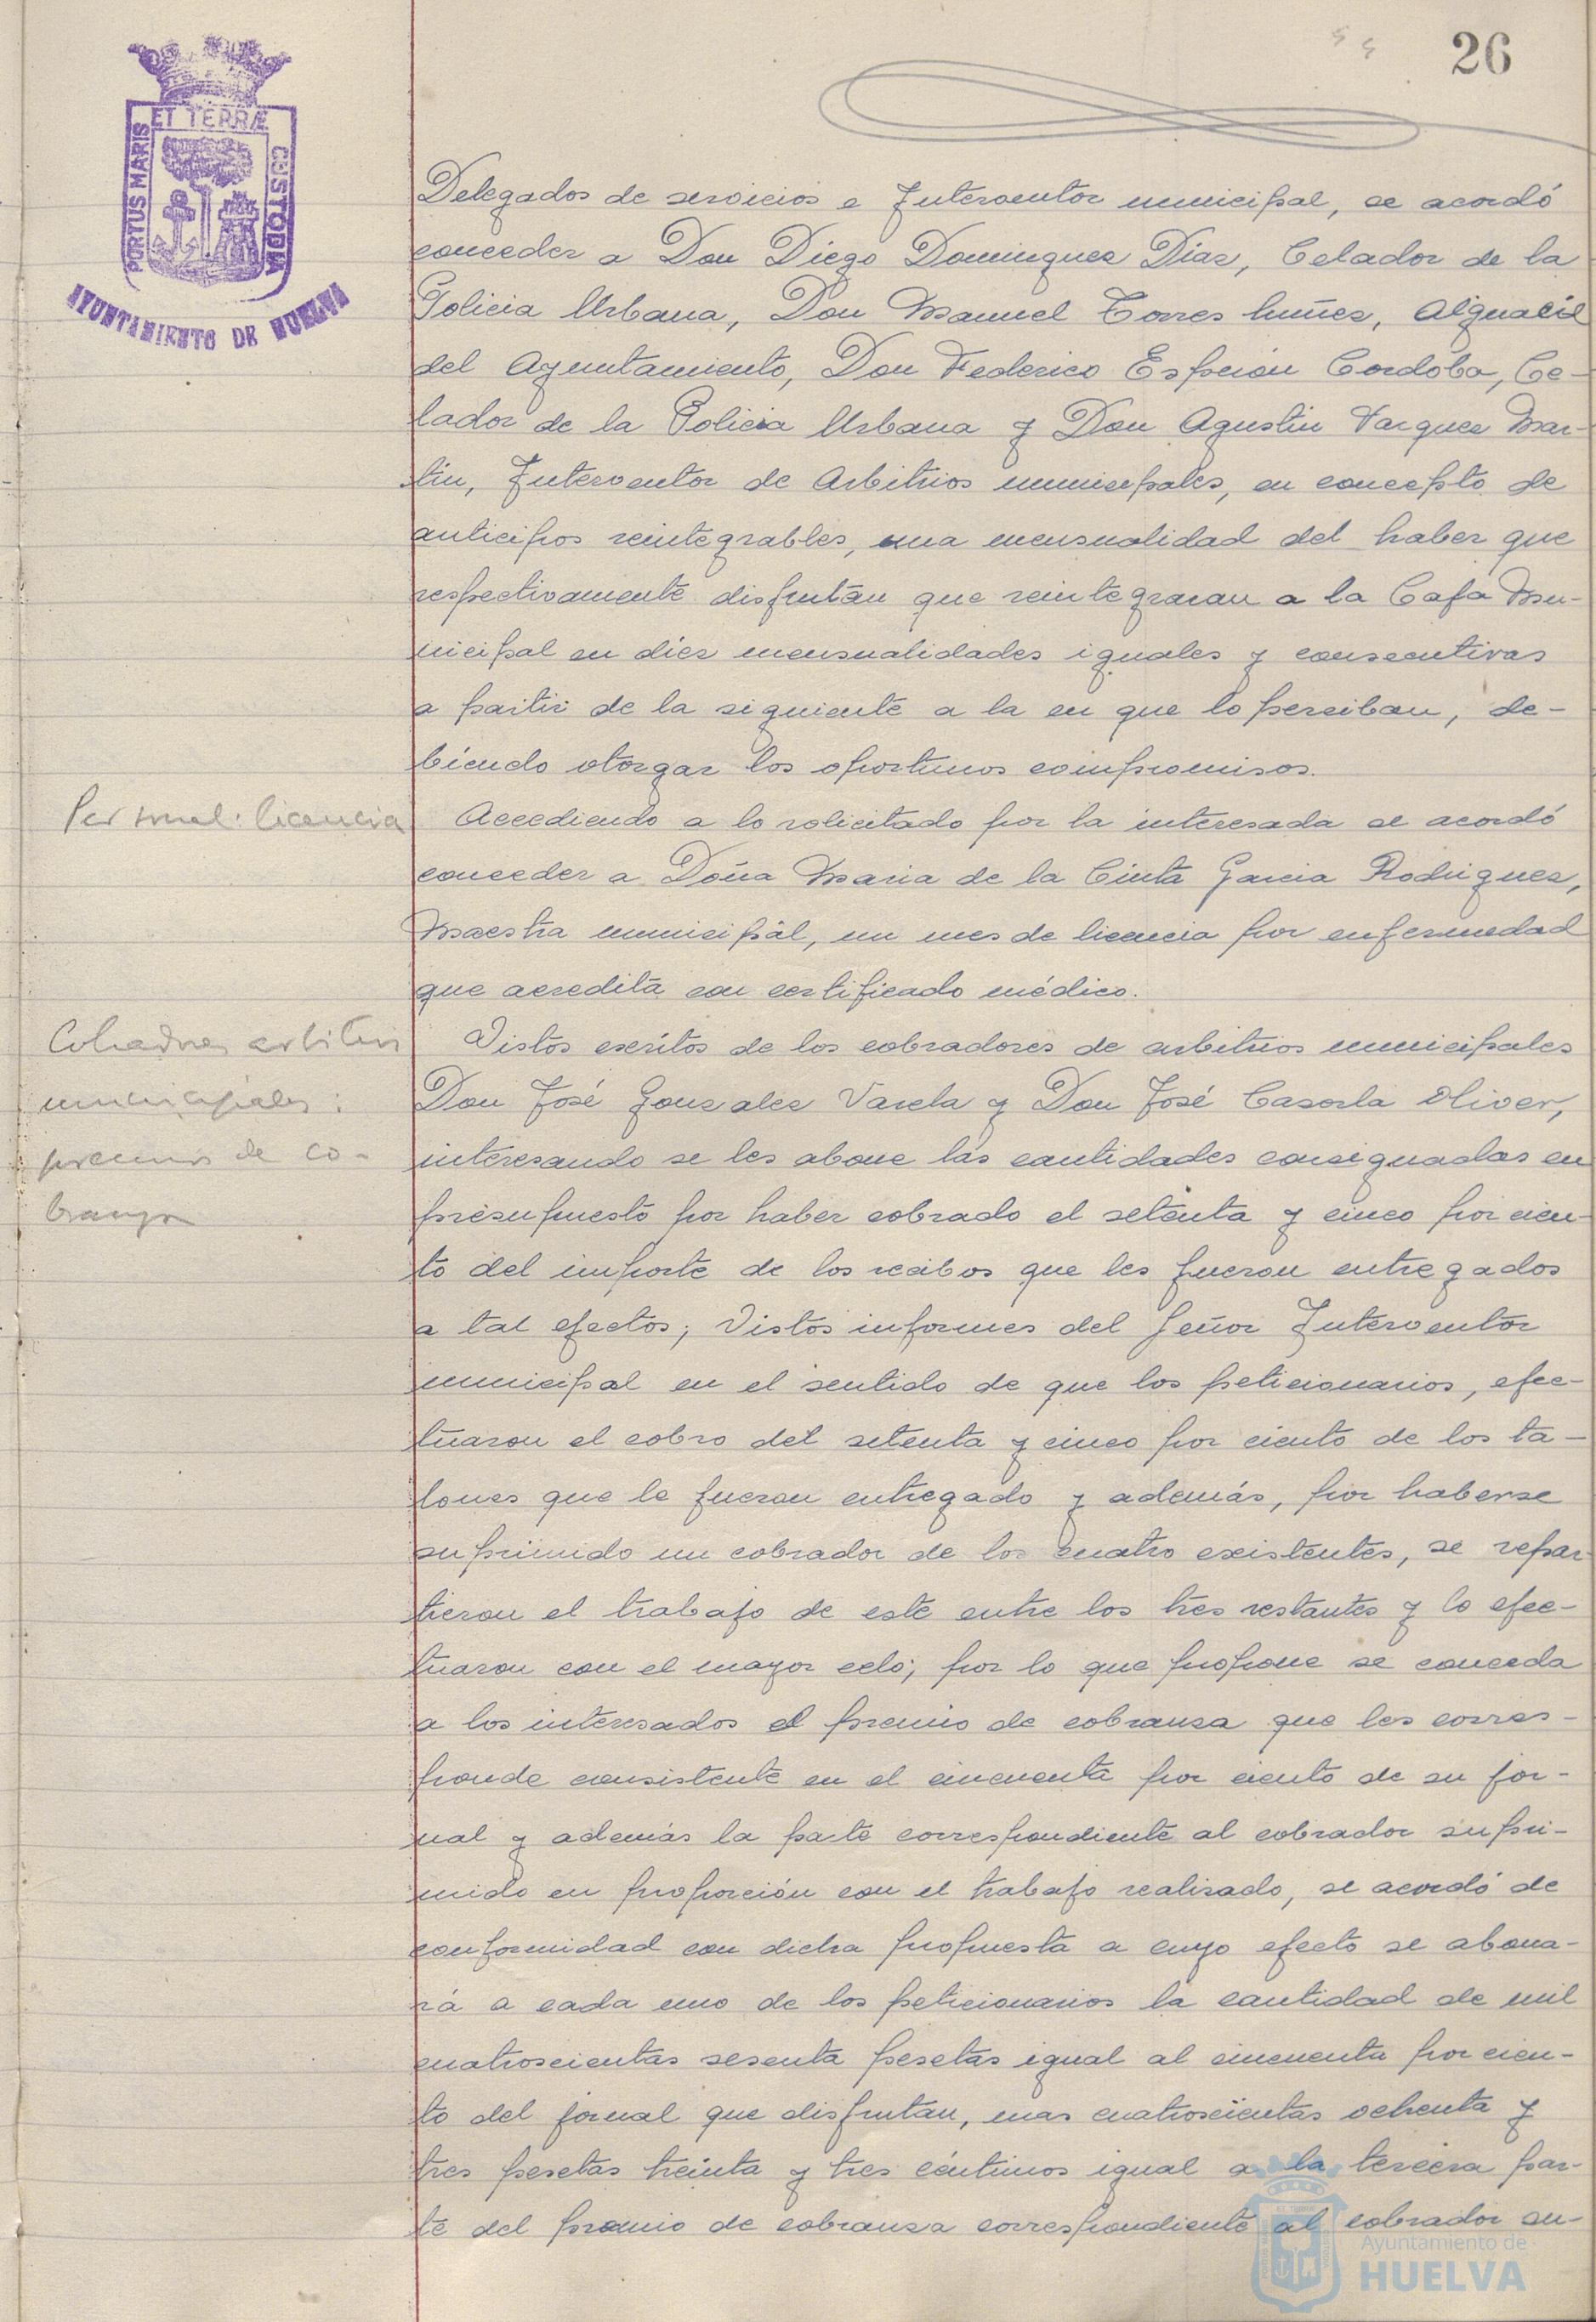 26
ET TERRÆ
PORTUS MARIS
CUSTODIA
AYUNTAMIENTO DE HUELVA
Delegados de servicios e Interventor municipal, se acordó
conceder a Don Diego Dominguez Diaz, Celador de la
Policia Urbana, Don Manuel Torres Nuñez, Alguacil
del Ayuntamiento, Don Federico Espción Cordóba, Ce-
lador de la Policia Urbana y Don Agustin Vazquez Mar-
tin, Interventor de Arbitrios municipales, en concepto de
anticipos reintegrables, una mensualidad del haber que
respectivamente disfrutan que reintegraran a la Caja Mu-
nicipal en diez mensualidades iguales y consecutivas
a partir de la siguiente a la en que lo perciban, de-
biendo otorgar los oportunos compromisos.
Personal: licencia
Accediendo a lo solicitado por la interesada se acordó
conceder a Doña Maria de la Cinta Garcia Rodriguez,
Maestra municipal, un mes de licencia por enfermedad
que acredita con certificado médico.
Cobradores arbitrios
municipales:
premios de co-
branza
Vistos escritos de los cobradores de arbitrios municipales
Don José Gonzalez Varela y Don José Casorla Oliver,
interesando se les abone las cantidades consignadas en
presupuesto por haber cobrado el setenta y cinco por cien-
to del importe de los recibos que les fueron entregados
a tal efectos; Vistos informes del Señor Interventor
municipal en el sentido de que los peticionarios, efec-
tuaron el cobro del setenta y cinco por ciento de los ta-
lones que le fueron entregado y además, por haberse
suprimido un cobrador de los cuatro existentes, se repar
tieron el trabajo de este entre los tres restantes y lo efec-
tuaron con el mayor celo; por lo que propone se conceda
a los interesados el premio de cobranza que les corres-
ponde consistente en el cincuenta por ciento de su jor-
nal y además la parte correspondiente al cobrador supri-
mido en proporción con el trabajo realizado, se acordó de
conformidad con dicha propuesta a cuyo efecto se abona-
rá a cada uno de los peticionarios la cantidad de mil
cuatroscientas sesenta pesetas igual al cincuenta por cien-
to del jornal que disfrutan, mas cuatroscientas ochenta y
tres pesetas treinta y tres céntimos igual a la tercera par-
te del premio de cobranza correspondiente al cobrador su-
Ayuntamiento de
HUELVA